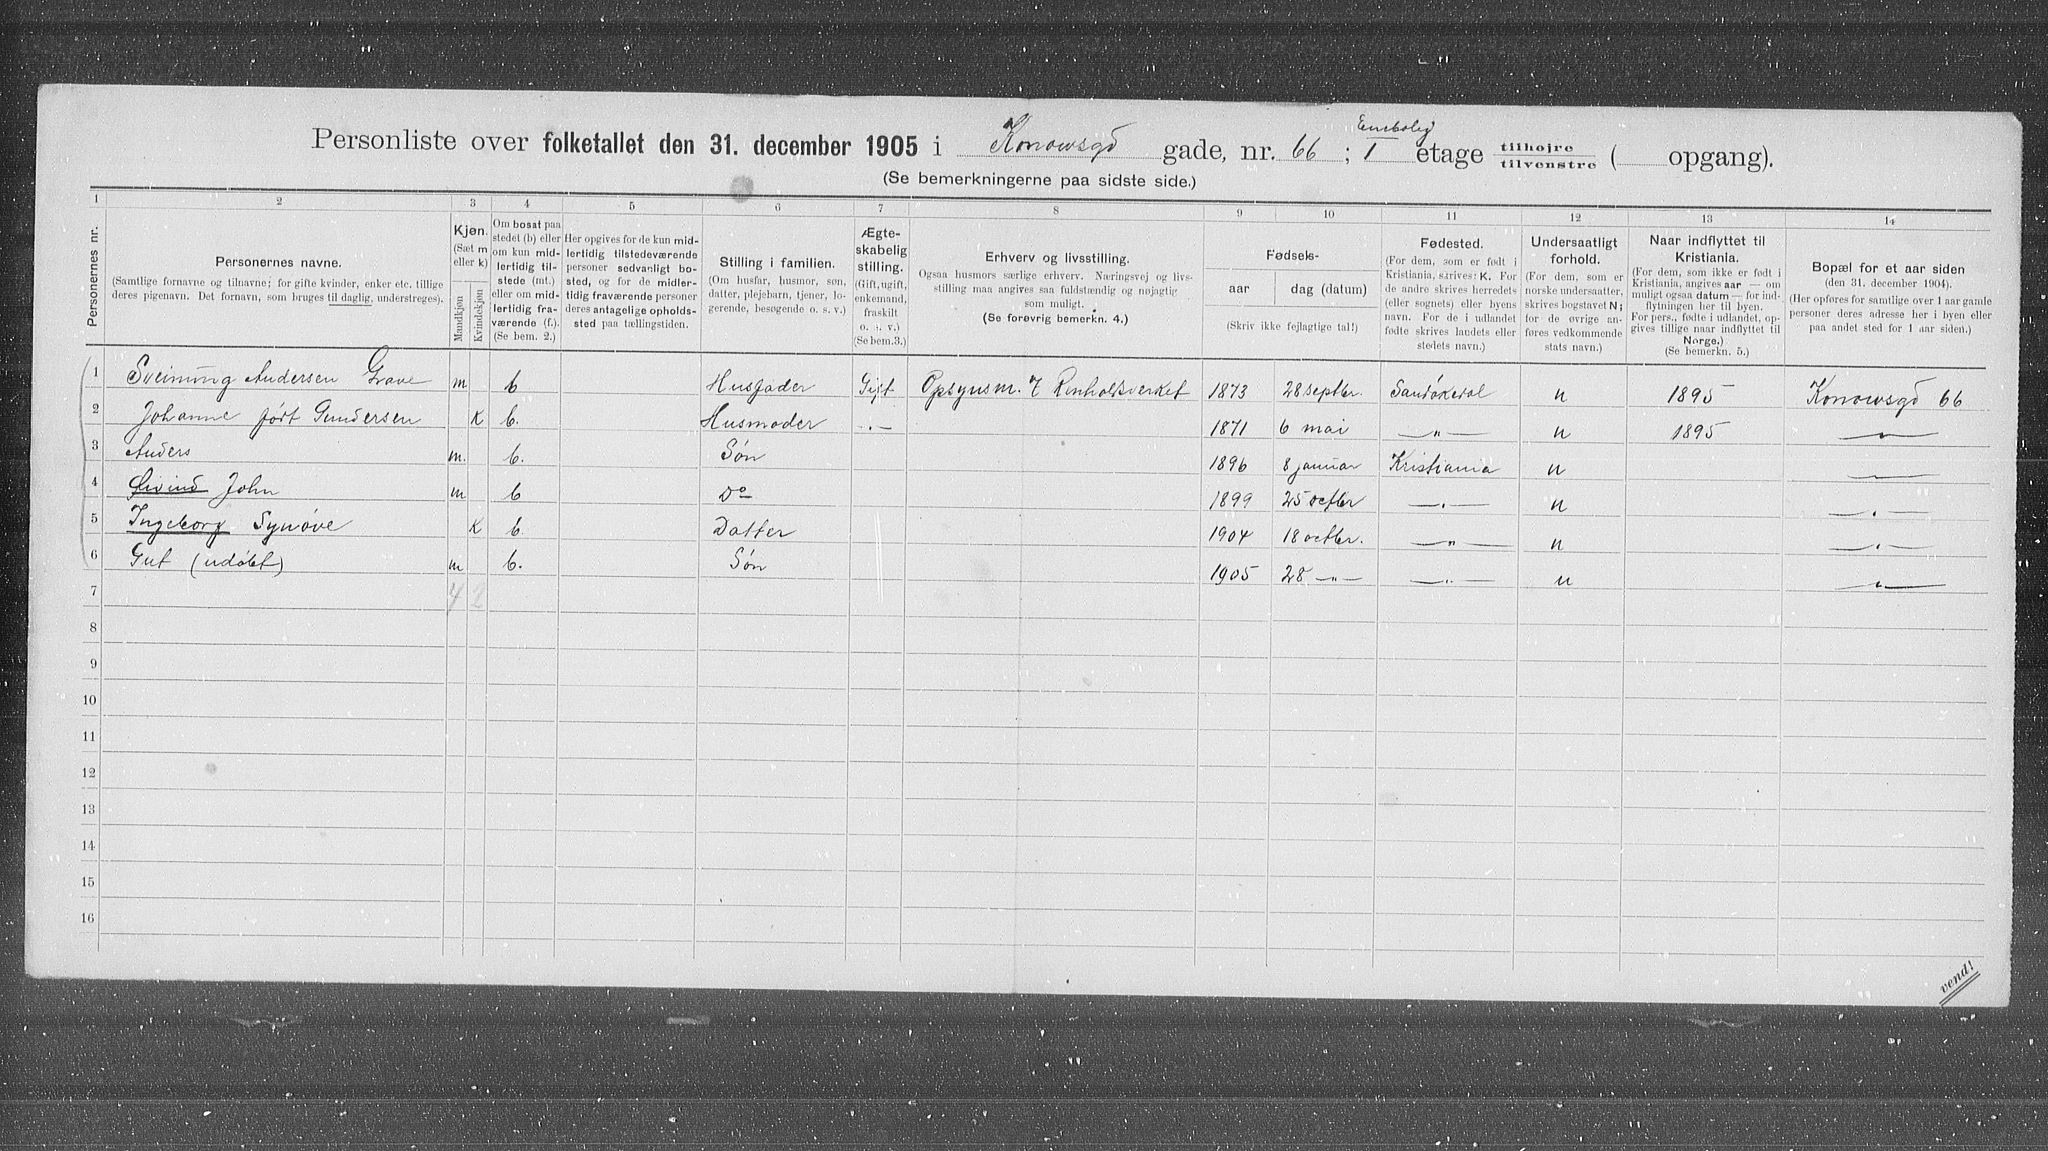 Personliste over folketallet den 31. december 1905 i Konowsgd gade, nr. 66 ; I Enebolig etage tilhøjre tilvenstre ( opgang).
(Se bemerkningerne paa sidste side.)
1 2 3 4 5 6 7 8 9 10 11 12 13 14
Personernes nr.
Personernes navne.
(Samtlige fornavne og tilnavne; for gifte kvinder, enker etc. tillige
deres pigenavn. Det fornavn, som bruges til daglig, understreges).
Kjøn.
(Sæt m
eller k)
Mandkjøn
Kvindekjøn
Om bosat paa
stedet (b) eller
om kun mid-
lertidig til-
stede (mt.)
eller om mid-
lertidig fra-
værende (f.).
(Se bem. 2.)
Her opgives for de kun mid-
lertidig tilstedeværende
personer sedvanligt bo-
sted, og for de midler-
tidig fraværende personer
deres antagelige opholds-
sted paa tællingstiden.
Stilling i familien.
(Om husfar, husmor, søn,
datter, plejebarn, tjener, lo-
gerende, besøgende o. s. v.)
Ægte-
skabelig
stilling.
(Gift, ugift,
enkemand,
fraskilt
o. s. v.)
(Se bem.3.)
Erhverv og livsstilling.
Ogsaa husmors særlige erhverv. Næringsvej og livs-
stilling maa angives saa fuldstændig og nøjagtig
som muligt.
(Se forøvrig bemerkn. 4.)
Fødsels-
aar
dag (datum)
(Skriv ikke fejlagtige tal!)
Fødested.
(For dem, som er født i
Kristiania, skrives: K. For
de andre skrives herredets
(eller sognets) eller byens
navn. For de i udlandet
fødte skrives landets eller
stedets navn.)
Undersaatligt
forhold.
(For dem, som er
norske undersaatter,
skrives bogstavet N;
for de øvrige an-
føres vedkommende
stats navn.)
Naar indflyttet til
Kristiania.
(For dem, som ikke er født i
Kristiania, angives aar — om
muligt ogsaa datum — for ind-
flytningen her til byen.
For pers., fødte i udlandet, op-
gives tillige naar indflyttet til
Norge.)
(Se bemerkn. 5.)
Bopæl for et aar siden
(den 31. december 1904).
(Her opføres for samtlige over 1 aar gamle
personer deres adresse her i byen eller
paa andet sted for 1 aar siden.)
1 Sveinung Andersen Grave m b Husfader Gift Opsynsm. v Renholdsverket 1873 28 septbr. Sandøkedal n 1895 Konowsgd 66
2 Johanne født Gundersen K b. Husmoder -"- 1871 6 mai —"— n 1895 —"—
3 Anders m. b. Søn 1896 8 januar Kristiania n —"—
4 Øivind John m b Do 1899 25 octbr —"— n —"—
5 Ingeborg Synøve K b. Datter 1904 18 octbr. —"— n —"—
6 Gut (udøbt) m b. Søn 1905 28 —"— —"— n —"—
7 4 2
8
9
10
11
12
13
14
15
16
vend!